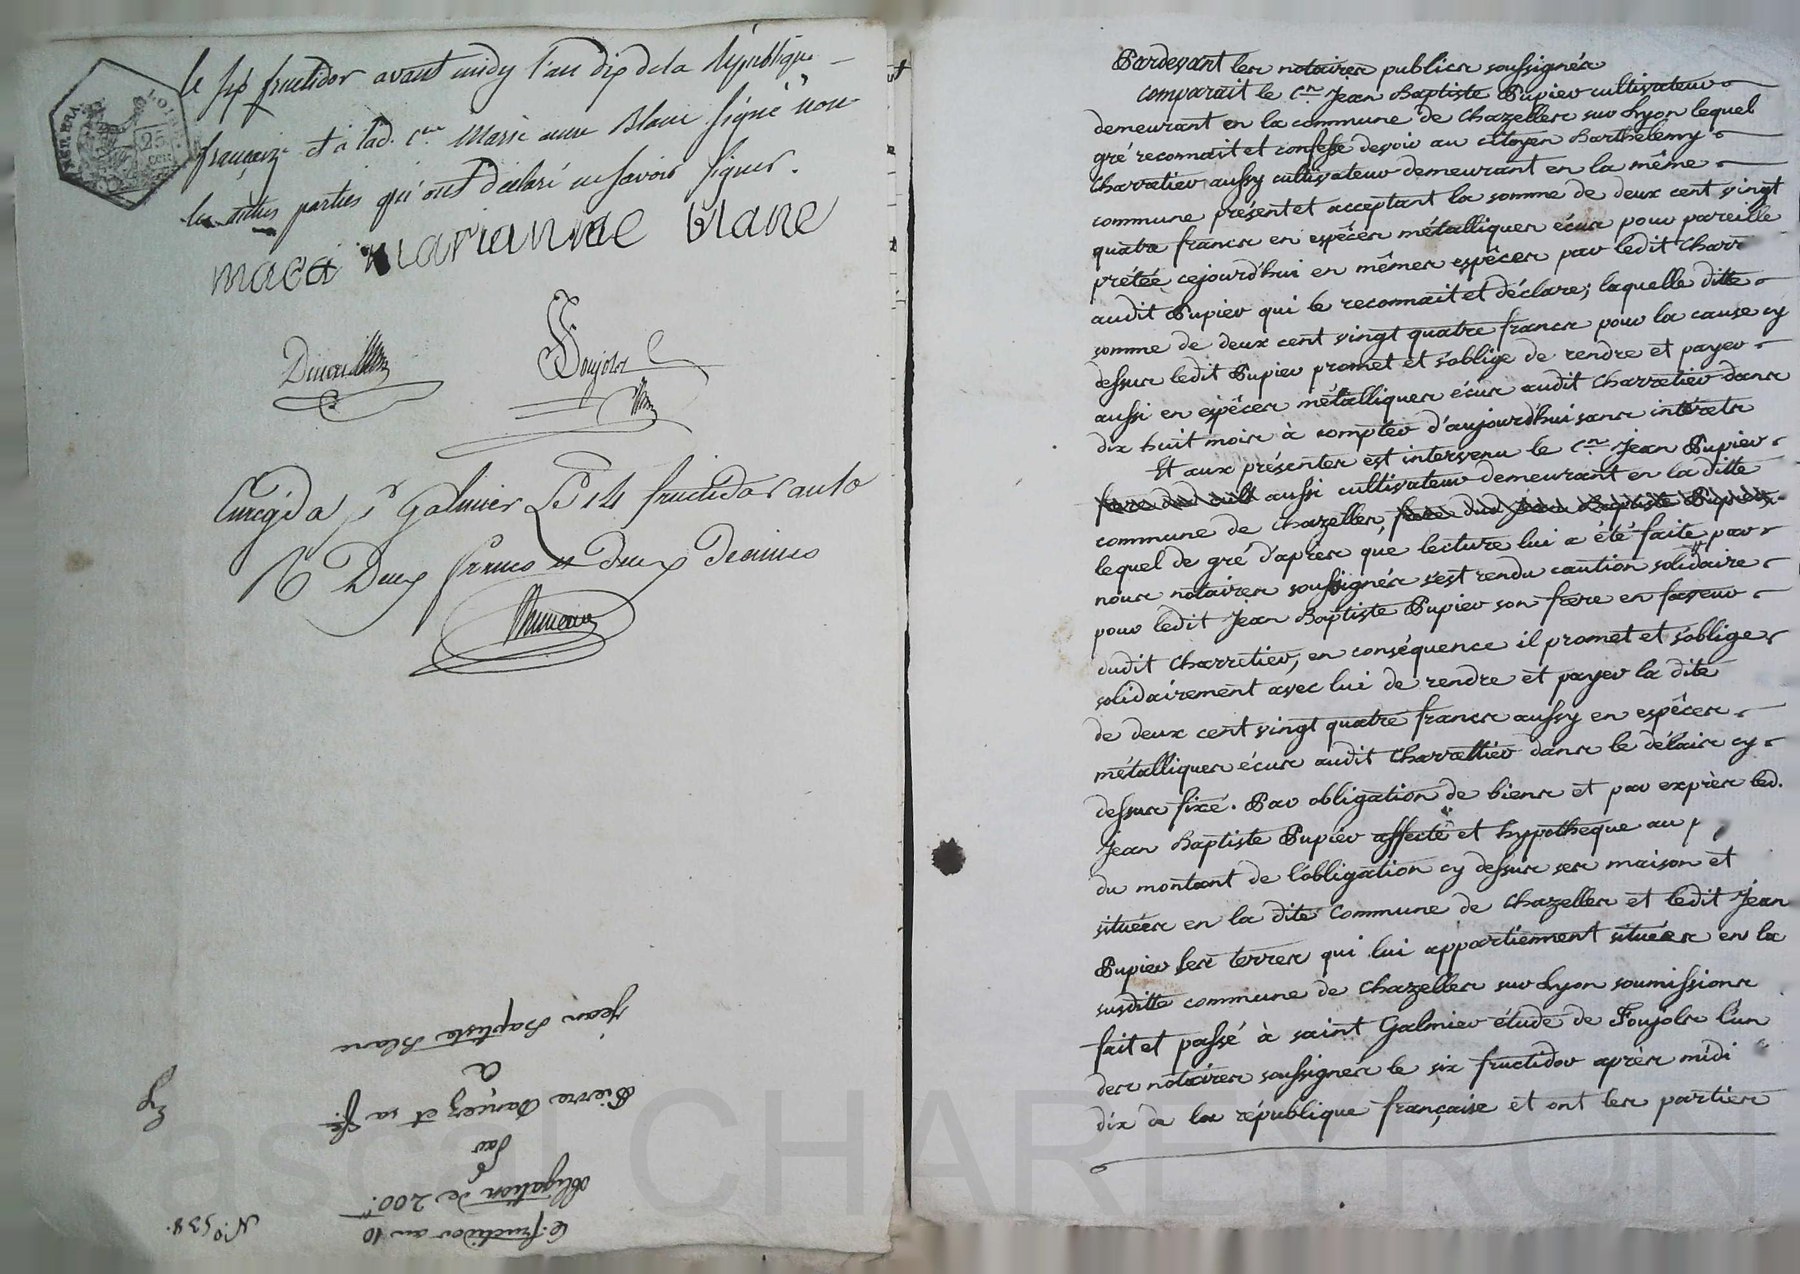 le six fructidor avant midy l'an dix de la République
française et à lad. c.ne Marie anne Blanc signé non
les autres parties qui ont déclaré ne savoir signer.
marianne blanc
25
Enrég. à S.t Galmier Le 14 fructidor an 10
R Deux francs et deux decimes
Jean Baptiste Blanc
a
Pierre et sa fe.
Par
obligation de 200.
6. fructidor an 10
N.o 538.
Pardevant les notaires publics soussignés
comparait le C.en Jean Baptiste Pupier cultivateur
demeurant en la commune de Chazelles sur Lyon lequel
gré reconnait et confesse devoir au citoyen Barthélemy
Charretier aussy cultivateur demeurant en la même
commune présent et acceptant la somme de deux cent vingt
quatre francs en espêces métalliques écus pour pareille
pretée cejourd'hui en mêmes espêces par ledit Charr
audit Pupier qui le reconnait et déclare; laquelle ditte
somme de deux cent vingt quatre francs pour la cause cy
dessus ledit Pupier promet et s'oblige de rendre et payer
aussi en espêces métalliques écus audit Charretier dans
dix huit mois à compter d'aujourd'hui sans intérets
Et aux présentes est intervenu le C.en Jean Pupier
aussi cultivateur demeurant en la ditte
commune de Chazelles, frere dud Jean Baptiste Pupier,
lequel de gré d'après que lecture lui a été faite par
nous notaires soussignés s'est rendu caution solidaire
pour ledit Jean Baptiste Pupier son frere en faveur
dudit Charretier, en conséquence il promet et s'oblige
solidairement avec lui de rendre et payer la dite
de deux cent vingt quatre francs aussy en espêces
métalliques écus audit Charrettier dans le délais cy
dessus fixé. Par obligation de biens et par exprès led.
Jean Baptiste Pupier affecte et hypotheque au p
du montant de l'obligation cy dessus ses maison et
situées en la dite Commune de Chazelles et ledit Jean
Pupier ses terres qui lui appartiennent situées en la
susditte commune de Chazelles sur Lyon soumissions
fait et passé à saint Galmier étude de Foujols l'un
des notaires soussignés le six fructidor après midi
dix de la république française et ont les parties
Pascal CHAREYRON